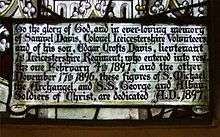 To the glory of God, and in ever-loving memory
of Samuel Davis, Colonel Leicestershire Volunteers
and of his son, Edgar Crofts Davis, lieutenant
7th Leicestershire Regiment; who entered into rest
the one February 4th 1897, and the other
November 17th 1896, these figures of S. Michael
the Archangel, and S.S. George and Alban
Soldiers of Christ, are dedicated A.D. 1897